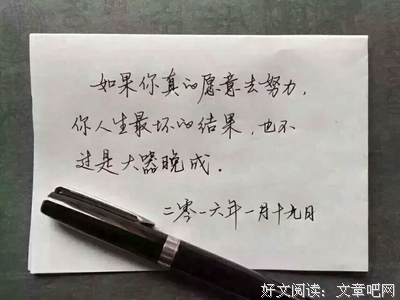 如果你真的愿意去努力,
你人生最坏的结果,也不
过是大器晚成.
二零一六年一月十九日
好文阅读:文章吧网